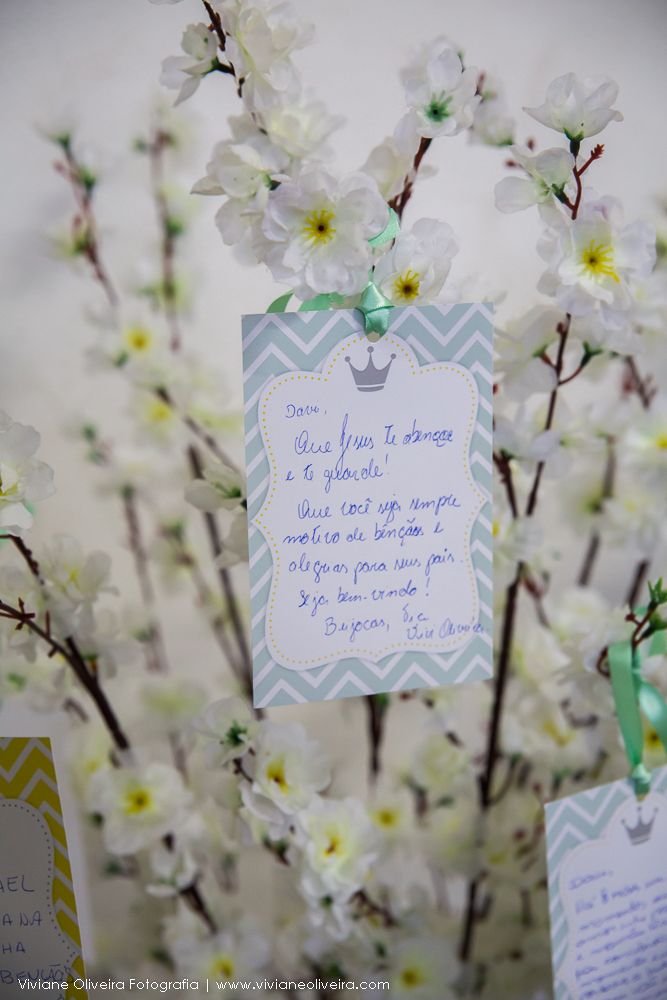 Davi,
Que Jesus te abençoe
e te guarde!
Que você seja sempre
motivo de bênçãos e
alegrias para seus pais.
Seja bem-vindo!
Beijocas, Tia
Vivi Oliveira
AEL
ANA NA
HA
BENÇÃO
Davi,
Viviane Oliveira Fotografia | www.vivianeoliveira.com